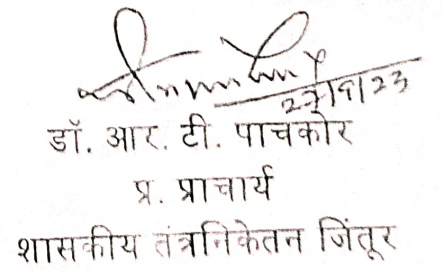 डॉ. आर. टी. पाचकोर
प्र. प्राचार्य
शासकीय तंत्रनिकेतन जिंतूर